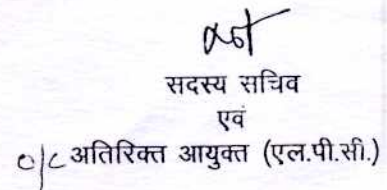 सदस्य सचिव
एवं
o/c अतिरिक्त आयुक्त (एल.पी.सी.)